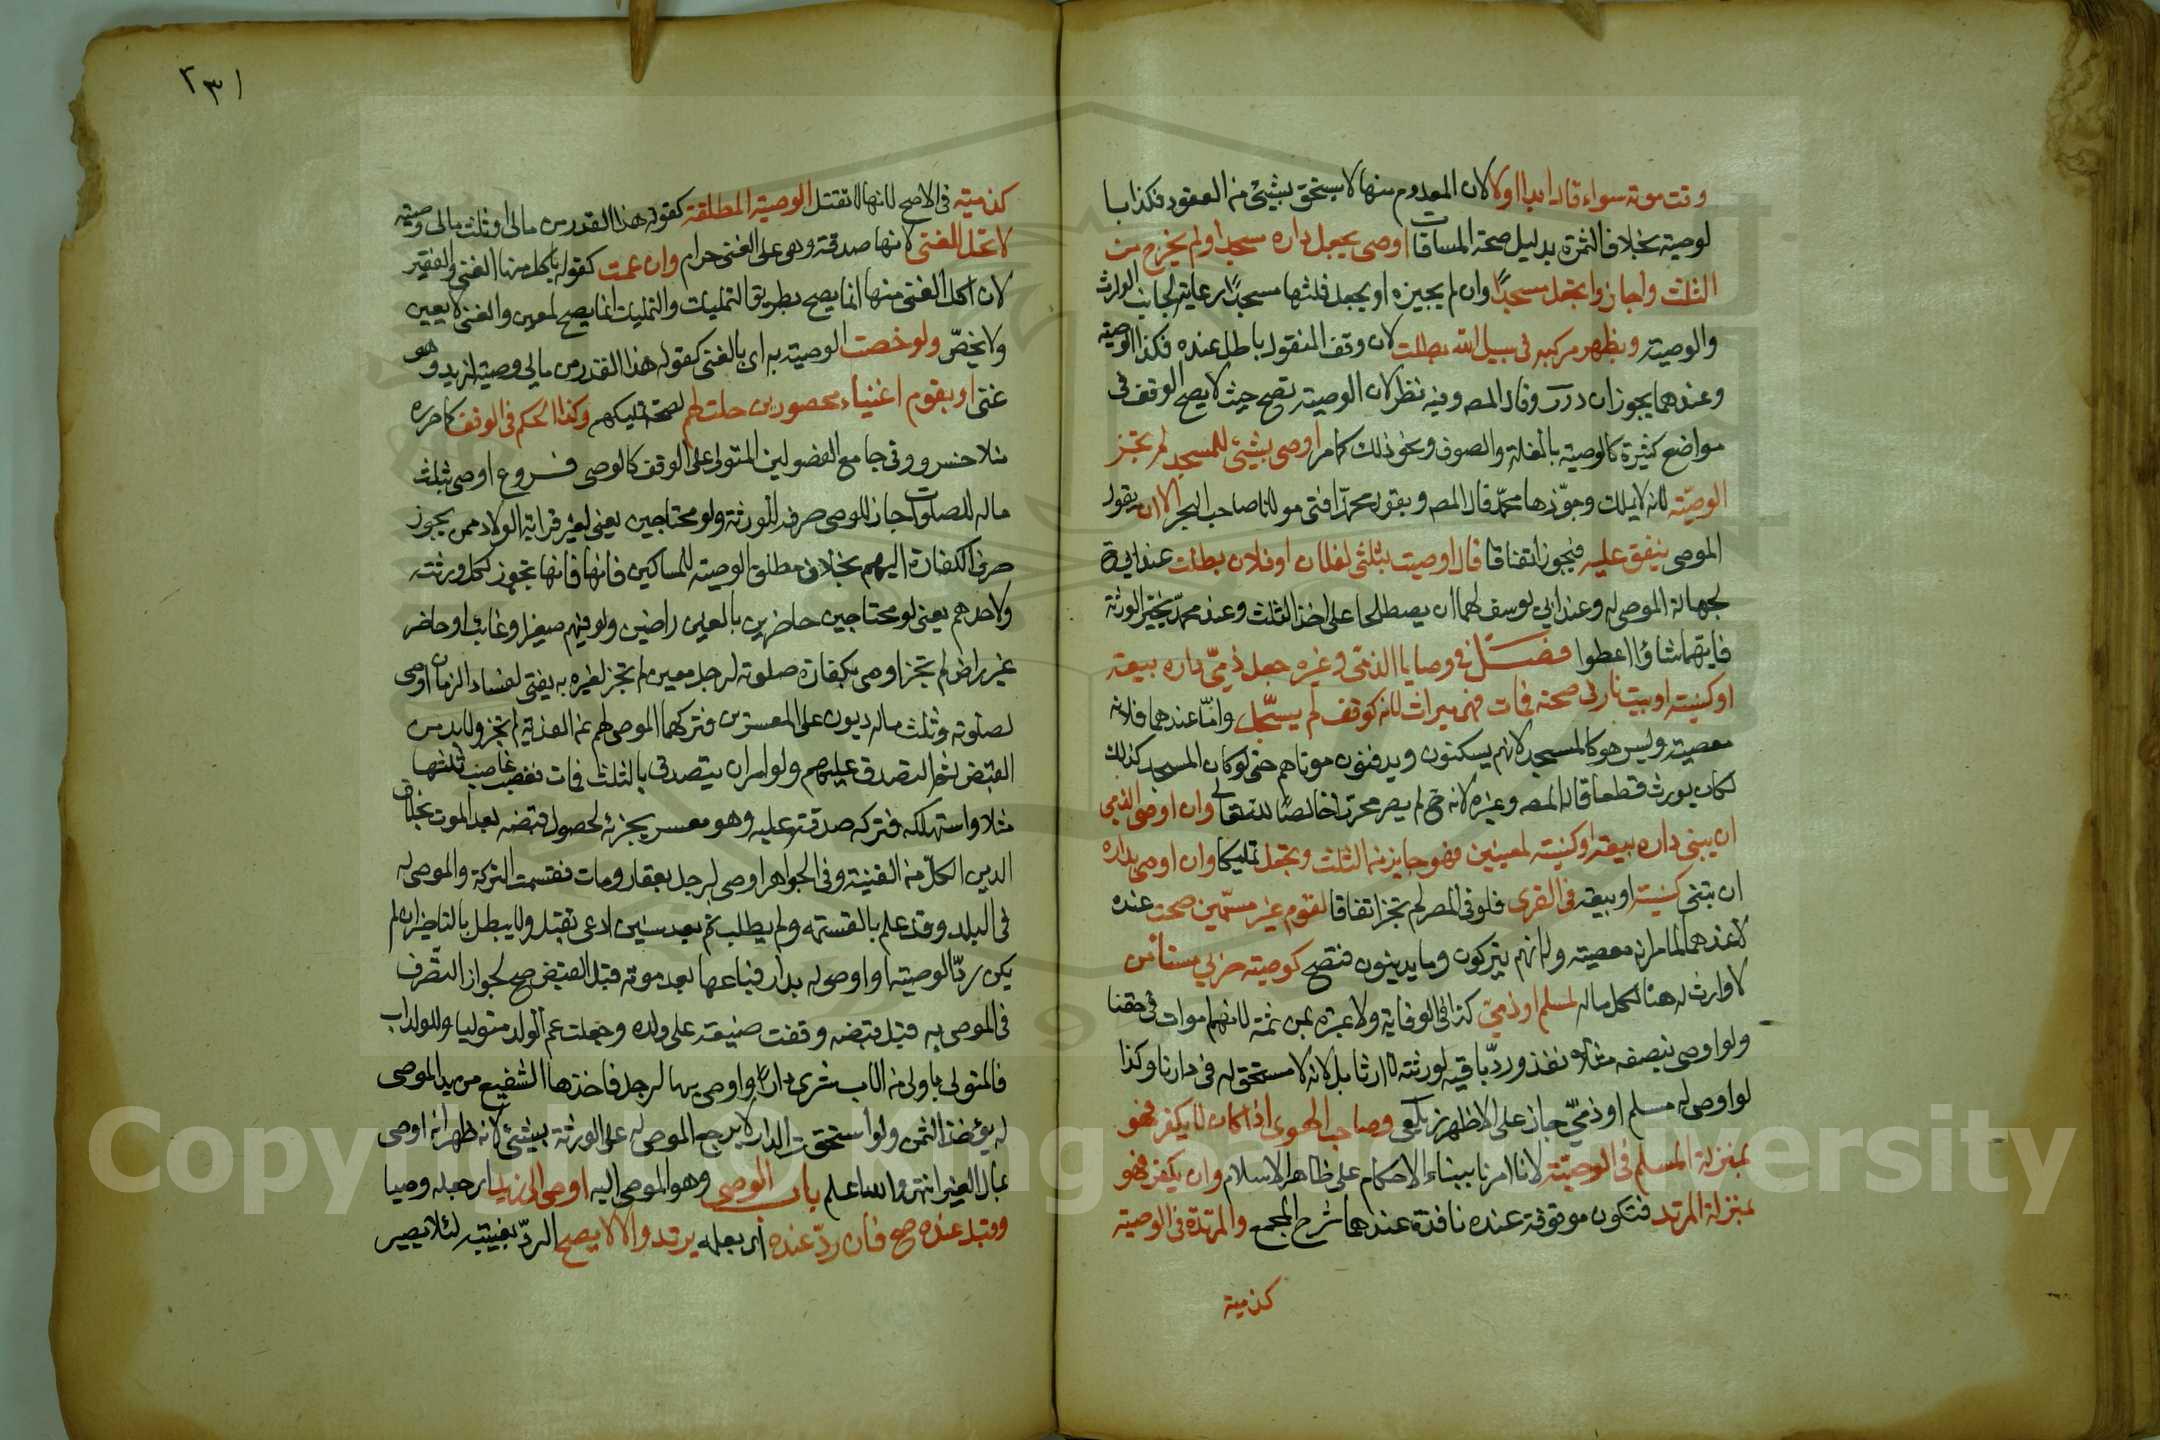 وقت موته سواء قال ابدا اولا لان المعدوم منها لا يستحق بشيئ من العقود فكذا با
لوصية بخلاف الثمرة بدليل صحة المساقات اوصى بجعل داره مسجدا ولم يخرج من
الثلث واجازوا تجعل مسجدًا وان لم يجيزه او يجعل ثلثها مسجدًا رعاية لجانب الوارث
والوصية وبظهر مركبه في سبيل الله بطلت لان وقف المنقول باطل عنده فكذا الوصية
وعندهما يجوزان درر وقال المصـ وفيه نظر لان الوصية تصح حيث لا يصح الوقف في
مواضع كثيرة كالوصية بالغلة والصوف ونحو ذلك كما مر اوصى بشيئ للمسجد لم تجز
الوصيّة لانه لا يملك وجوّزها محمّد قال المصـ وبقول محمدّ افتى مولانا صاحب البحر الا ان يقول
الموصى ينفق عليه فيجوز اتفاقا قال اوصيت بثلثى لفلان او فلان بطلت عند ابي ح
لجهالة الموصى له وعند ابي يوسف لهما ان يصطلحا على اخذ الثلث وعند محمدّ يخيّر الورثة
فايتهما شاؤا اعطوا فصل في وصايا الذمّى وغيره جعل ذمّيّ داره بيعة
او كنيسة او بيت نار في صحته فمات فهى ميراث لانه كوقف لم يسجّل وامّا عندهما فلانه
معصية وليس هو كالمسجد لانهم يسكنون ويدفنون موتاهم حتى لو كان المسجد كذلك
لكان يورث قطعا قاله المصـ وغيره لانه ح لم يصر محرزا خالصًا لله تعالى وان اوصى الذمى
ان يبنى داره بيعة او كنيسة لمعينين فهو جايز من الثلث وتجعل تمليكا وان اوصى بداره
ان تبنى كنيسة او بيعة في القرى فلو في المصر لم تجز اتفاقا لقوم غير مسمّين صحت عنده
لا عندهما لما مر انه معصية وله انهم يتركون وما يدينون فتصح كوصية حربي مستأمن
لا وارث له هنا لكل ماله لمسلم او ذمّيّ كذا في الوفاية ولا عبرة بمن ثمة لانهم اموات في حقنا
ولو اوصى بنصفه مثلا نفذ وردّ باقيه لورثته لا ارثا بل لانه لا مستحق له في دارنا وكذا
لو اوصى له مسلم او ذمّيّ جاز على الاظهر زيلعي وصاحب الهوى اذا كان لا يكفر فهو
بمنزلة المسلم في الوصيّة لانا امرنا ببناء الاحكام على ظاهر الاسلام وان يكفر فهو
بمنزلة المرتد فتكون موقوفة عنده نافذة عندهما شرح المجمع والمرتدة في الوصية
كذمية
٢٣١
كذمية في الاصح لانها لا تقتل الوصية المطلقة كقوله هذا القدر من مالى او ثلث مالى وصية
لا تحل للغنى لانها صدقة وهى على الغنى حرام وان عمت كقوله ياكل منها الغنى والفقير
لان اكل الغنى منها انما يصح بطريق التمليك والتمليك انما يصح لمعين والغنى لا يعين
ولا يخصّ ولو خصت الوصية به اى بالغنى كقوله هذا القدر من مالي وصية لزيد وهو
غنى او بقوم اغنياء محصورين حلت لهم لصحة تمليكهم وكذا الحكم في الوقف كما حرره
منلا خسرو وفي جامع الفصولين المتولى على الوقف كالوصى فروع اوصى بثلث
ماله للصلوات جاز للوصى صرفه للورثة ولو محتاجين يعنى لغير قرابة الولاد ممن يجوز
صرف الكفارة اليهم بخلاف مطلق الوصية للمساكين فانها فانها تجوز لكل ورثته
ولاحدهم يعنى لو محتاجين حاضرين بالغين راضين ولو فيهم صغير او غايب او حاضر
غير راض لم تجز اوصى بكفارة صلوته لرجل معين لم تجز لغيره به يفتى لفساد الزمان اوصى
لصلوته وثلث ماله ديون على المعسرين فتركها الموصى لهم عن الفدية لم تجز ولا بد من
القبض ثم التصدق عليهم ولو امر ان يتصدق بالثلث فمات فغصب غاصب ثلثها
مثلا واستهلكه فتركه صدقة عليه وهو معسر يجزئه لحصول قبضه بعد الموت بخلاف
الدين الكلّ من القنية وفي الجواهر اوصى لرجل بعقار ومات فقسمت التركة والموصى له
في البلد وقد علم بالقسمة ولم يطلب ثم بعد سنين ادعى تقبل ولا يبطل بالتاخير ان لم
يكن ردّ الوصية او اوصى له بدار فباعها بعد موته قبل القبض صح لجواز التصّرف
في الموصى به قبل قبضه وقفت ضيعة على ولده وجعلت عم الولد متوليا وللولد اب
فالمتولى اولى من الاب شرى دارًا واوصى بها لرجل فاخذها الشفيع من يد الموصى
له يؤخذ الثمن ولو استحقت الدار لا يرجع الموصى له على الورثة بشيئ لانه ظهر انه اوصى
بمال الغير انتهى والله اعلم باب الوصى وهو الموصى اليه اوصى الى زيد اى جعله وصيا
وقبل عنده صح فان ردّ عنده اى بعلمه يرتد والا لا يصح الردّ بغيبته لئلا يصير